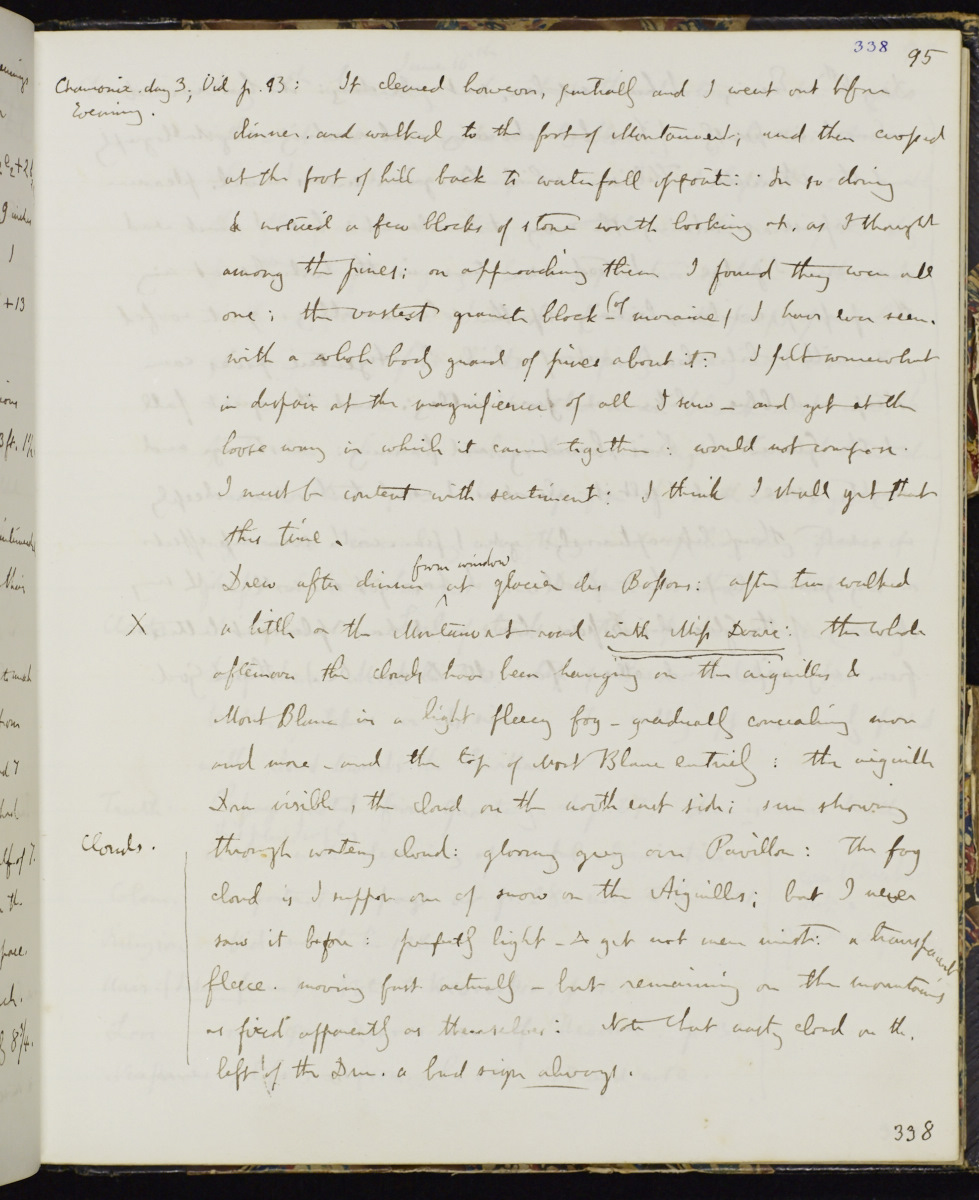 338 95
Chamonix. day 3; Vid p. 93: It cleared however, partially and I went out before
Evening.
dinner. and walked to the foot of Montanvert; and then
at the foot of hill back to waterfall opposite: in so doing
I noticed a few blocks of stone worth looking at, as I thought
among the pines; on approaching them I found they were all
one; the vastest granite block (of moraine) I have ever seen.
with a whole body guard of pines about it: I felt somewhat
in despair at the magnificence of all I saw – and yet at the
loose way in which it came together: would not compose.
I must be content with sentiment: I think I shall get that
this time.
from window
Drew after dinner ^ at glacier des Bossons: after tea walked
X a little on the Montanvert road with Miss Dowie: the whole
afternoon the clouds have been hanging on the aiguilles &
Mont Blanc in a light fleecy fog – gradually concealing more
and more – and the top of Mont Blanc entirely: the aiguille
Dru visible, the cloud on the north east side; sun showing
Clouds. through watery cloud: gloomy grey over Pavillon: The fog
cloud is I suppose one of snow on the Aiguilles; but I never
saw it before: perfectly light – & yet not mere mist: a transparent
fleece. moving fast actually – but remaining on the mountains
as fixed apparently as themselves: Note that nasty cloud on the.
left of the Dru. a bad sign always.
338
1
+13